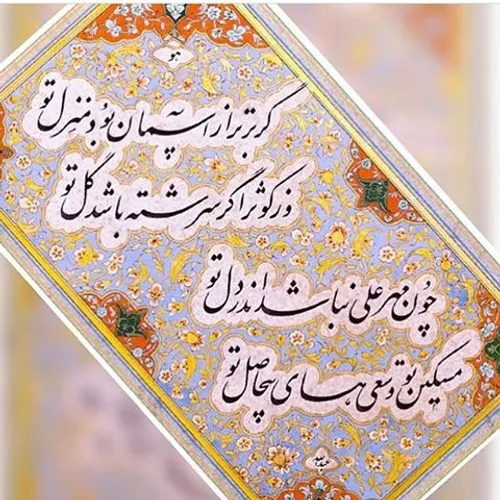 هو
گر برتر از آسمان بود منزل تو
وز کوثر اگر سرشته باشد گل تو
چون مهر علی نباشد اندر دل تو
مسکین تو و سعی های بیحاصل تو